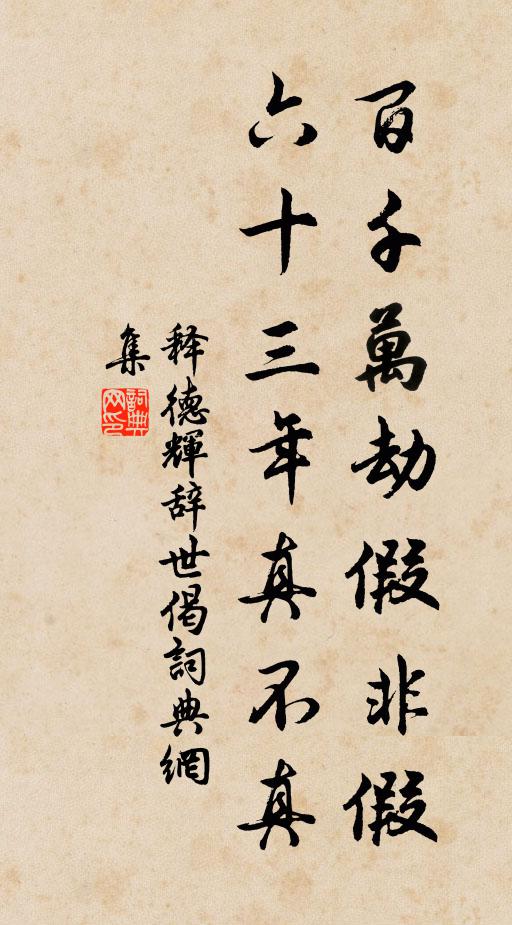 百千萬劫假非假
六十三年真不真
释德輝辞世偈詞典網
集
詞典
网印